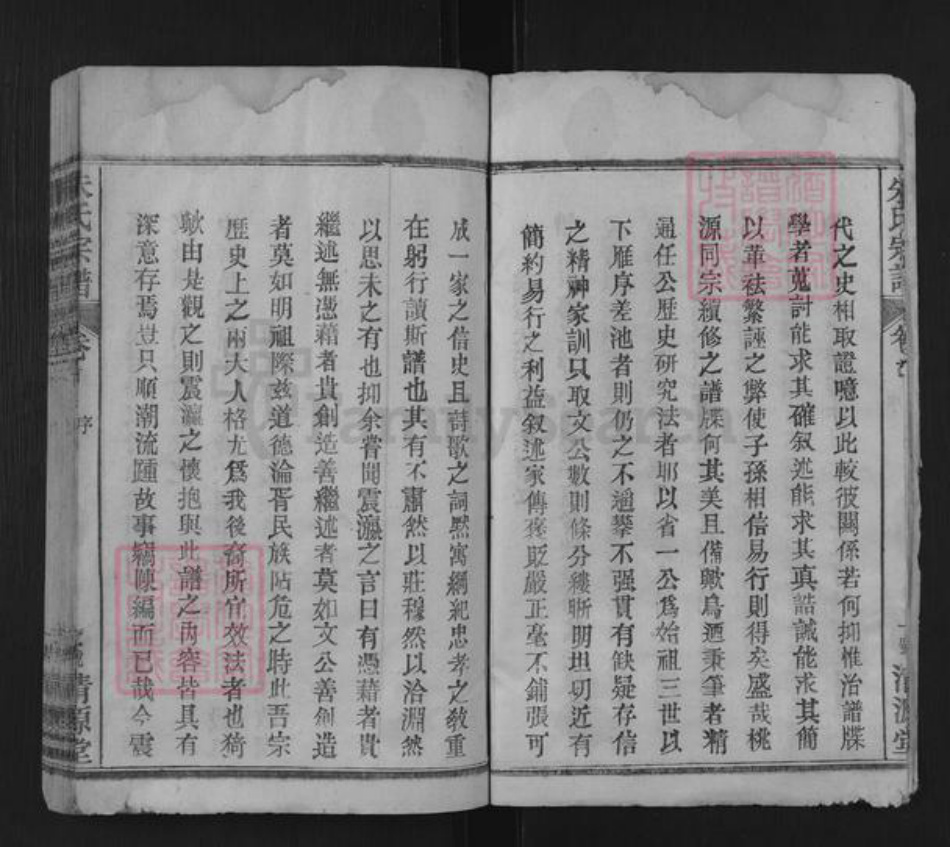 朱氏宗譜
卷首
清源堂
代之史相取證噫以此較彼關係若何抑惟治譜牒
學者蒐討能求其確叙述能求其真誥誡能求其簡
以革袪繁誣之弊使子孫相信易行則得矣盛哉桃
源同宗續修之譜牒何其美且備歟烏遯秉筆者精
通任公歷史研究法者耶以省一公爲始祖三世以
下雁序差池者則仍之不通攀不强貫有缺疑存信
之精神家訓只取文公數則條分縷晰明坦切近有
簡約易行之利益叙述家傳褒貶嚴正毫不鋪張可
成一家之信史且詩歌之詞黙寓綱紀忠孝之敎重
在躬行讀斯譜也其有不肅然以莊穆然以洽淵然
以思未之有也抑余嘗聞震瀛之言曰有憑藉者貴
繼述無憑藉者貴創造善繼述者莫如文公善創造
者莫如明祖際兹道德淪胥民族阽危之時此吾宗
歷史上之兩大人格尤爲我後裔所宜效法者也猗
歟由是觀之則震瀛之懷抱與此譜之內容皆具有
深意存焉豈只順潮流踵故事竊陳編而已哉今震
朱氏宗譜
卷首
序
清源堂
FamilySearch